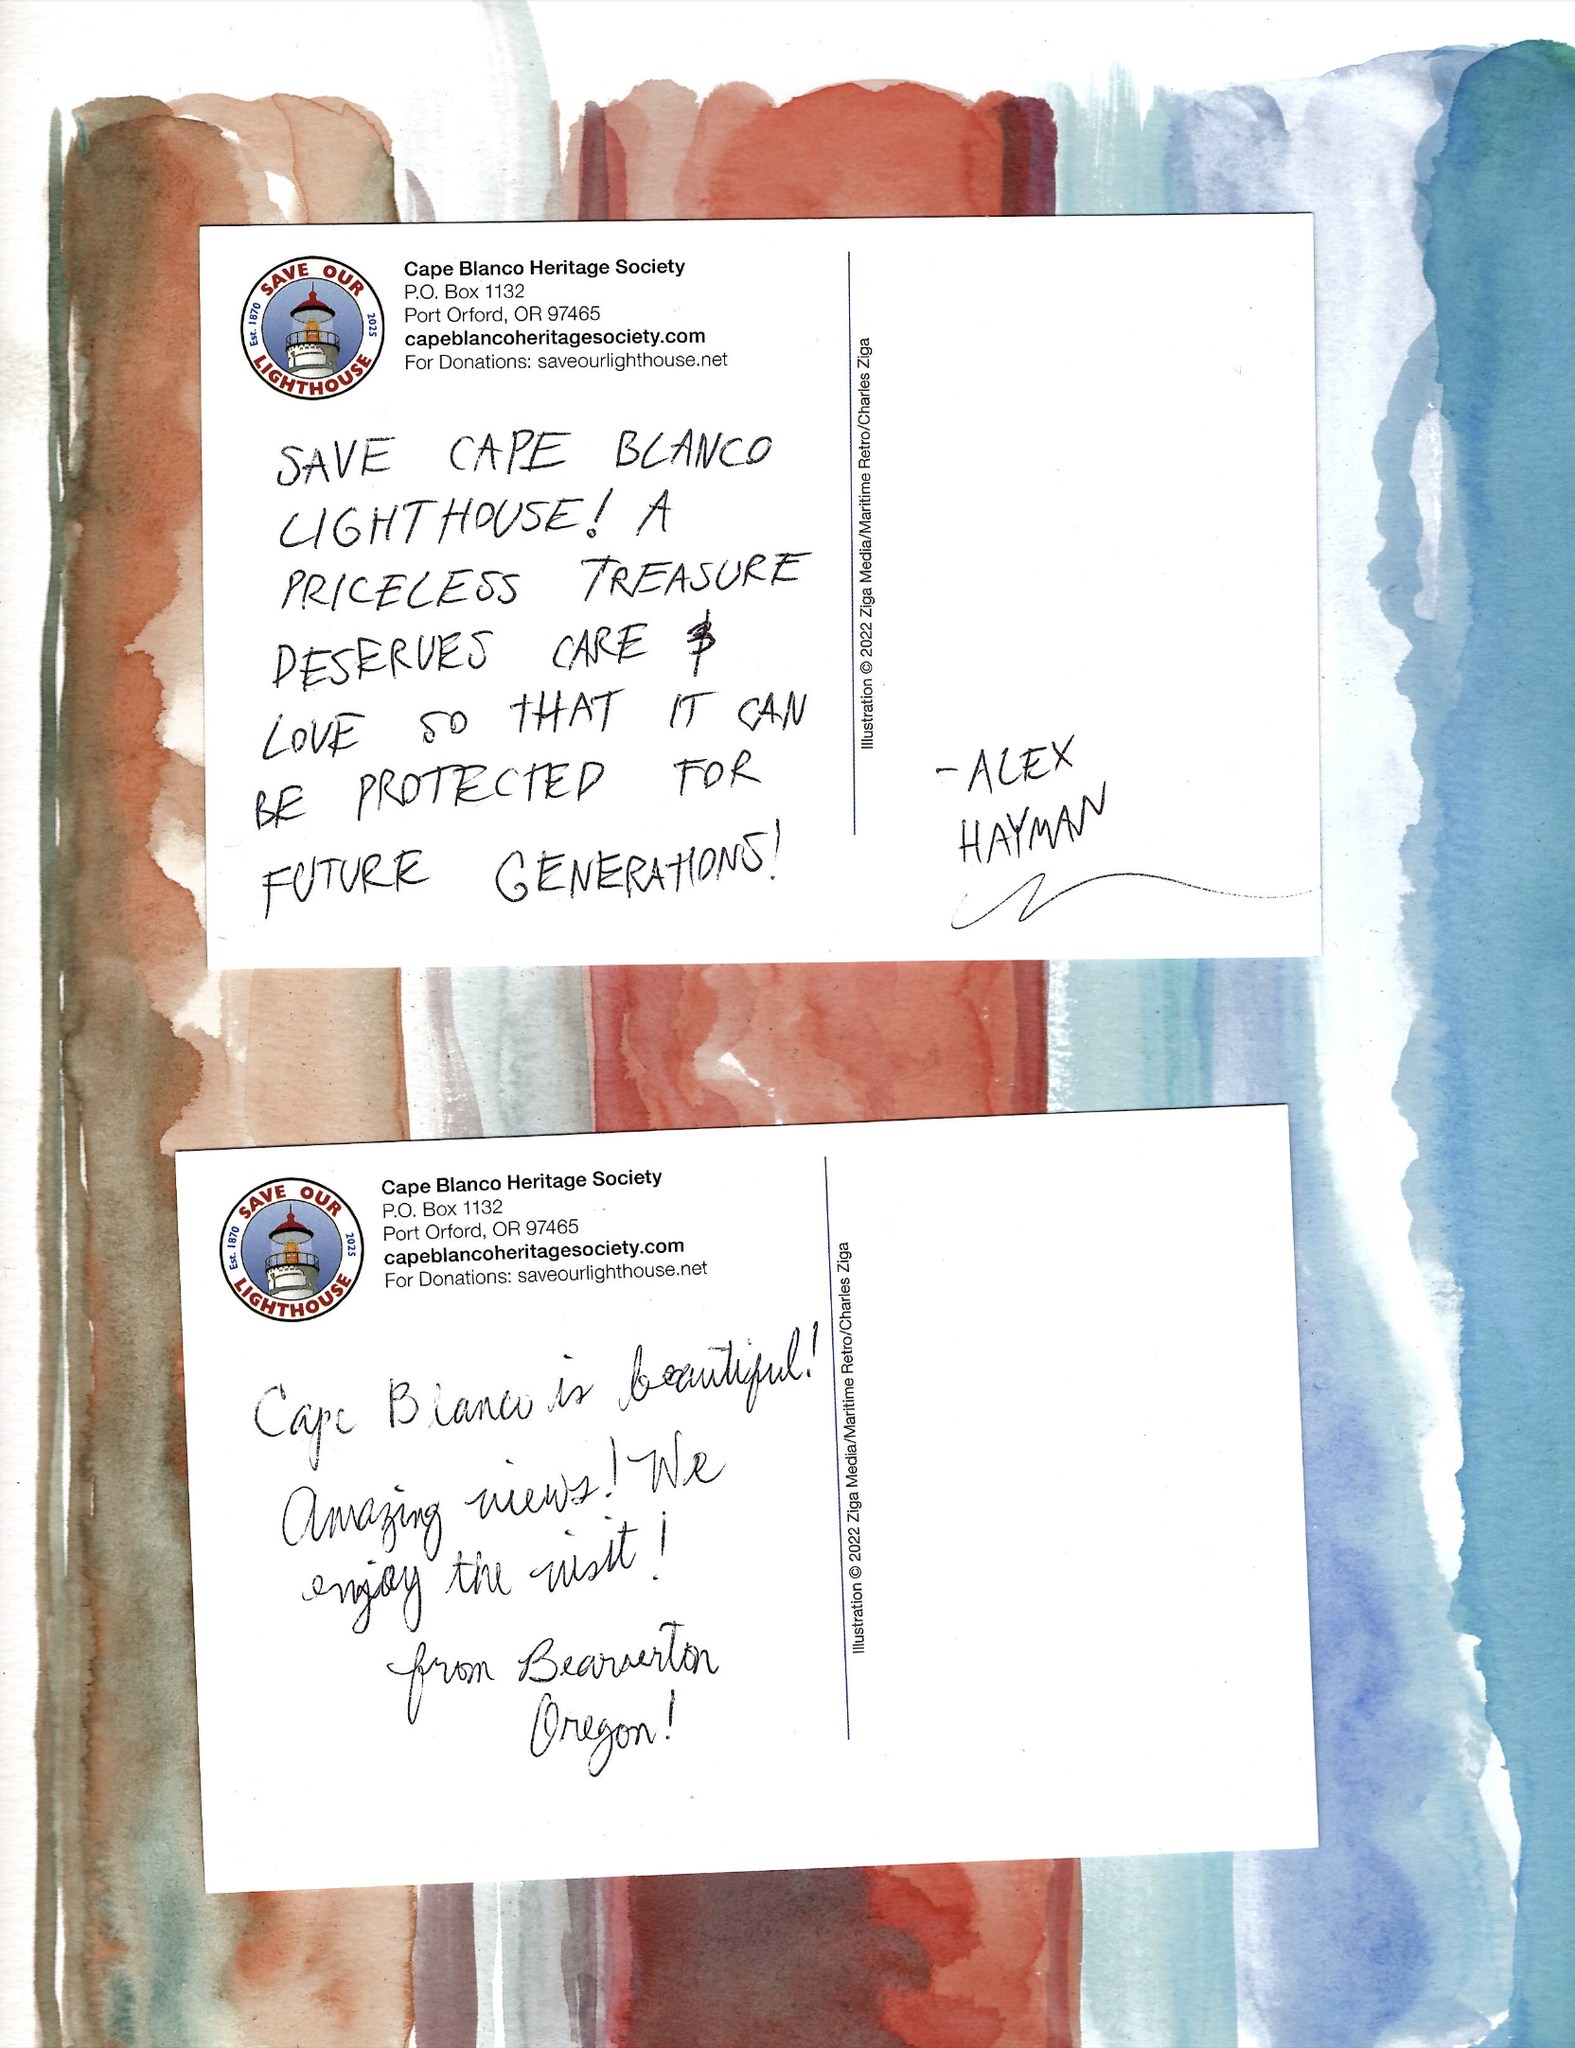 SAVE OUR
LIGHTHOUSE
Est. 1870
2025
Cape Blanco Heritage Society
P.O. Box 1132
Port Orford, OR 97465
capeblancoheritagesociety.com
For Donations: saveourlighthouse.net
SAVE CAPE BLANCO
LIGHTHOUSE! A
PRICELESS TREASURE
DESERVES CARE &
LOVE SO THAT IT CAN
BE PROTECTED FOR
FUTURE GENERATIONS!
Illustration © 2022 Ziga Media/Maritime Retro/Charles Ziga
-ALEX
HAYMAN
SAVE OUR
LIGHTHOUSE
Est. 1870
2025
Cape Blanco Heritage Society
P.O. Box 1132
Port Orford, OR 97465
capeblancoheritagesociety.com
For Donations: saveourlighthouse.net
Cape Blanco is beautiful!
Amazing views! We
enjoy the visit!
from Bearverton
Oregon!
Illustration © 2022 Ziga Media/Maritime Retro/Charles Ziga